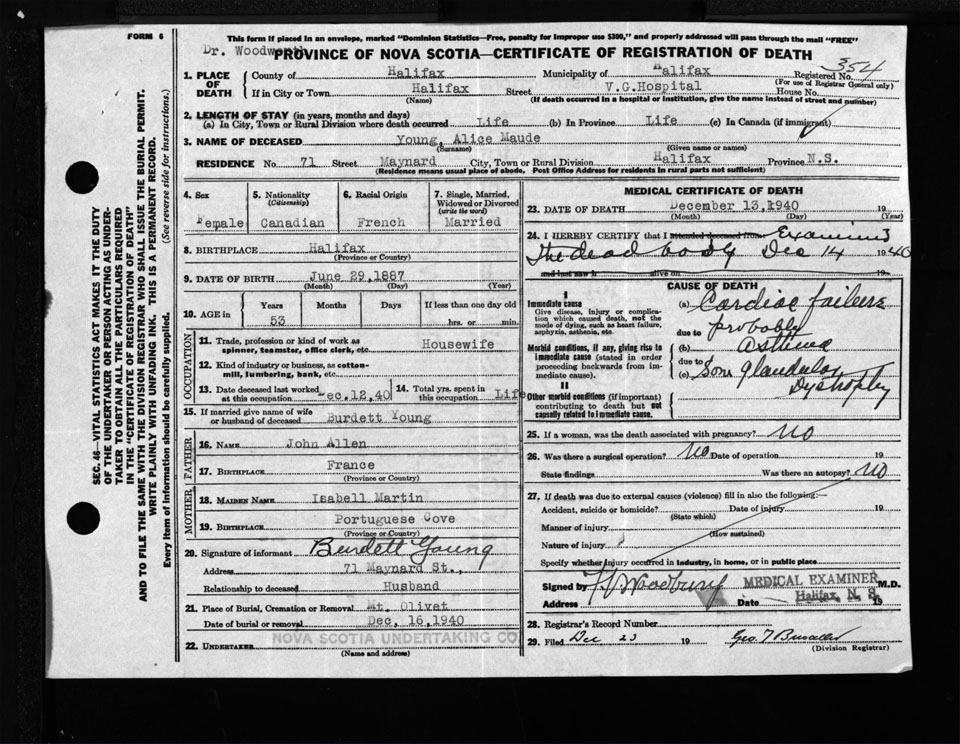 FORM 6
This form if placed in an envelope, marked "Dominion Statistics—Free, penalty for improper use $300," and properly addressed will pass through the mail "FREE"
Dr. Woodworth
PROVINCE OF NOVA SCOTIA—CERTIFICATE OF REGISTRATION OF DEATH
354
1. PLACE OF DEATH
County of Halifax Municipality of Halifax Registered No.
(For use of Registrar General only)
If in City or Town Halifax Street V.G.Hospital House No.
(Name) (If death occurred in a hospital or institution, give the name instead of street and number)
2. LENGTH OF STAY (in years, months and days)
(a) In City, Town or Rural Division where death occurred Life (b) In Province Life (c) In Canada (if immigrant)
3. NAME OF DECEASED Young, Alice Maude
(Surname) (Given name or names)
RESIDENCE No. 71 Street Maynard City, Town or Rural Division Halifax Province N.S.
(Residence means usual place of abode. Post Office Address for residents in rural parts not sufficient)
4. Sex Female
5. Nationality (Citizenship) Canadian
6. Racial Origin French
7. Single, Married, Widowed or Divorced (write the word) Married
8. BIRTHPLACE Halifax
(Province or Country)
9. DATE OF BIRTH June 29,1887
(Month) (Day) (Year)
10. AGE in Years Months Days If less than one day old
53 hrs. or min.
OCCUPATION
11. Trade, profession or kind of work as spinner, teamster, office clerk, etc. Housewife
12. Kind of industry or business, as cotton-mill, lumbering, bank, etc.
13. Date deceased last worked at this occupation Dec.12,40
14. Total yrs. spent in this occupation Life
15. If married give name of wife or husband of deceased Burdett Young
FATHER
16. NAME John Allen
17. BIRTHPLACE France
(Province or Country)
MOTHER
18. MAIDEN NAME Isabell Martin
19. BIRTHPLACE Portuguese Cove
(Province or Country)
20. Signature of informant Burdett Young
Address 71 Maynard St.,
Relationship to deceased Husband
21. Place of Burial, Cremation or Removal Mt. Olivet
Date of burial or removal Dec, 16,1940
22. UNDERTAKER NOVA SCOTIA UNDERTAKING CO
(Name and address)
MEDICAL CERTIFICATE OF DEATH
23. DATE OF DEATH December 13,1940 19
(Month) (Day) (Year)
24. I HEREBY CERTIFY that I attended deceased from Examined
the dead body Dec 14 1940
and last saw h alive on 19
CAUSE OF DEATH
I
Immediate cause
Give disease, injury or complication which caused death, not the mode of dying, such as heart failure, asphyxia, asthenia, etc.
(a) Cardiac failure
due to probably
Morbid conditions, if any, giving rise to immediate cause (stated in order proceeding backwards from immediate cause).
(b) asthma
due to
(c) Som glandular Dystrophy
II
Other morbid conditions (if important) contributing to death but not causally related to immediate cause.
25. If a woman, was the death associated with pregnancy? No
26. Was there a surgical operation? No Date of operation 19
State findings Was there an autopsy? No
27. If death was due to external causes (violence) fill in also the following:—
Accident, suicide or homicide? Date of injury 19
(State which)
Manner of injury
(How sustained)
Nature of injury
Specify whether injury occurred in industry, in home, or in public place
Signed by MEDICAL EXAMINER M.D.
Address Date Halifax, N. S. 19
28. Registrar's Record Number
29. Filed Dec 23 19
(Division Registrar)
SEC. 46—VITAL STATISTICS ACT MAKES IT THE DUTY
OF THE UNDERTAKER OR PERSON ACTING AS UNDER-
TAKER TO OBTAIN ALL THE PARTICULARS REQUIRED
IN THE "CERTIFICATE OF REGISTRATION OF DEATH"
AND TO FILE THE SAME WITH THE DIVISION REGISTRAR WHO SHALL ISSUE THE BURIAL PERMIT.
WRITE PLAINLY WITH UNFADING INK. THIS IS A PERMANENT RECORD.
Every item of Information should be carefully supplied. (See reverse side for instructions.)